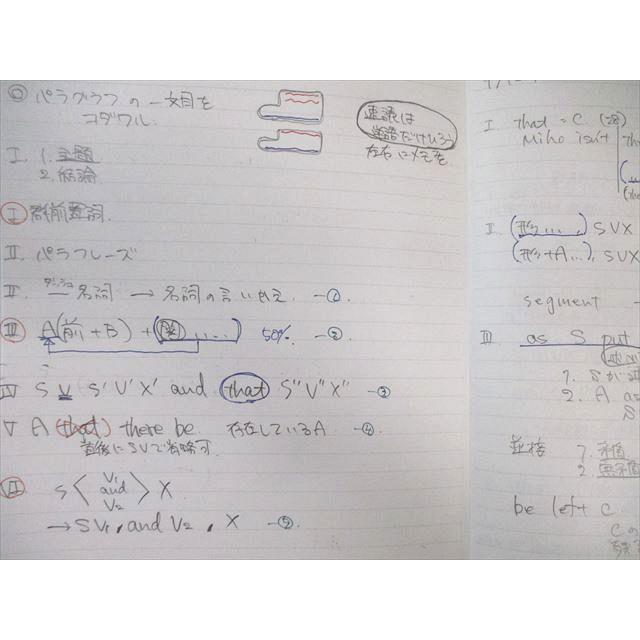 ◎ パラグラフの一文目を
コダワル.
速読は
左右にメモを
I. 1. 主題
2. 結論
I 群前置詞.
II パラフレーズ
II. ダッシュ — 名詞 → 名詞の言いかえ —①.
III A(前+B) + (関 .....) 50%. —②.
IV S V S'V'X' and that S"V"X" —③
V A (that) there be 存在しているA —④
直後にSVで省略可.
VI S < V1 and V2 > X
→ S V1, and V2, X —⑤
I that = C.
Miho isn't
II. (形....) SVX
(形+A...), SVX
segment
III as S put
1. Sが
2. A as
S
並接 1. 矛盾
2.
be left C
Cの